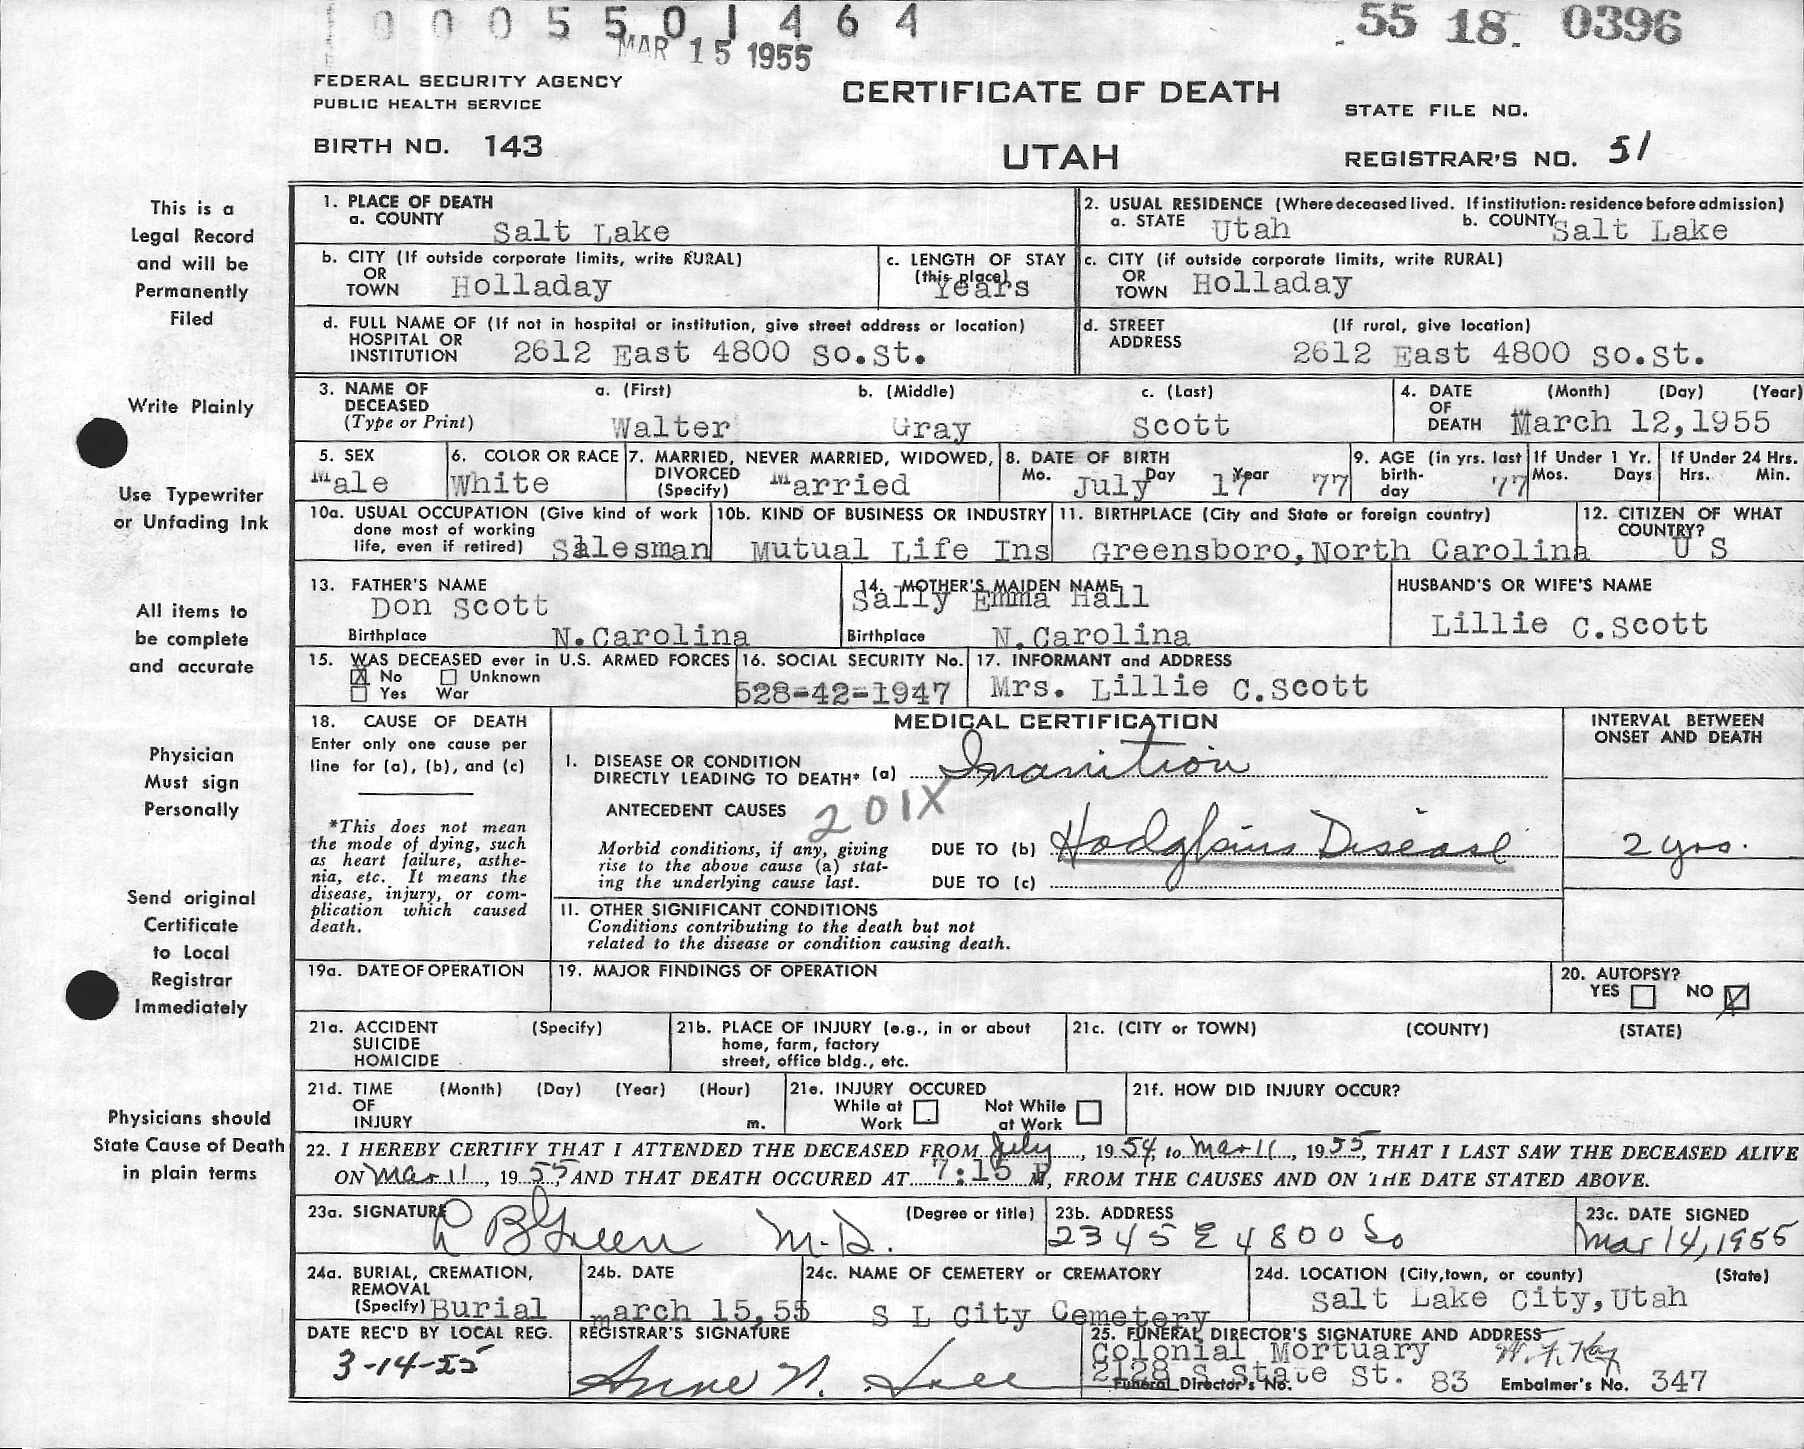 0005501464
MAR 15 1955
55 18 0396
FEDERAL SECURITY AGENCY
PUBLIC HEALTH SERVICE
BIRTH NO. 143
CERTIFICATE OF DEATH
UTAH
STATE FILE NO.
REGISTRAR'S NO. 51
This is a
Legal Record
and will be
Permanently
Filed
Write Plainly
Use Typewriter
or Unfading Ink
All items to
be complete
and accurate
Physician
Must sign
Personally
Send original
Certificate
to Local
Registrar
Immediately
Physicians should
State Cause of Death
in plain terms
1. PLACE OF DEATH
a. COUNTY Salt Lake
2. USUAL RESIDENCE (Where deceased lived. If institution: residence before admission)
a. STATE Utah b. COUNTY Salt Lake
b. CITY (If outside corporate limits, write RURAL)
OR
TOWN Holladay
c. LENGTH OF STAY
(this place)
Years
c. CITY (if outside corporate limits, write RURAL)
OR
TOWN Holladay
d. FULL NAME OF (If not in hospital or institution, give street address or location)
HOSPITAL OR
INSTITUTION 2612 East 4800 So.St.
d. STREET (If rural, give location)
ADDRESS
2612 East 4800 So.St.
3. NAME OF a. (First) b. (Middle) c. (Last)
DECEASED
(Type or Print) Walter Gray Scott
4. DATE (Month) (Day) (Year)
OF
DEATH March 12,1955
5. SEX
Male
6. COLOR OR RACE
White
7. MARRIED, NEVER MARRIED, WIDOWED,
DIVORCED
(Specify) Married
8. DATE OF BIRTH
Mo. Day Year
July 17 77
9. AGE (in yrs. last
birth-
day 77
If Under 1 Yr.
Mos. Days
If Under 24 Hrs.
Hrs. Min.
10a. USUAL OCCUPATION (Give kind of work
done most of working
life, even if retired) Salesman
10b. KIND OF BUSINESS OR INDUSTRY
Mutual Life Ins
11. BIRTHPLACE (City and State or foreign country)
Greensboro,North Carolina
12. CITIZEN OF WHAT
COUNTRY?
U S
13. FATHER'S NAME
Don Scott
Birthplace N.Carolina
14. MOTHER'S MAIDEN NAME
Sally Emma Hall
Birthplace N.Carolina
HUSBAND'S OR WIFE'S NAME
Lillie C.Scott
15. WAS DECEASED ever in U.S. ARMED FORCES
X No Unknown
Yes War
16. SOCIAL SECURITY No.
528-42-1947
17. INFORMANT and ADDRESS
Mrs. Lillie C.Scott
18. CAUSE OF DEATH
Enter only one cause per
line for (a), (b), and (c)
*This does not mean
the mode of dying, such
as heart failure, asthe-
nia, etc. It means the
disease, injury, or com-
plication which caused
death.
MEDICAL CERTIFICATION
INTERVAL BETWEEN
ONSET AND DEATH
I. DISEASE OR CONDITION
DIRECTLY LEADING TO DEATH* (a) Inanition
ANTECEDENT CAUSES 201X
Morbid conditions, if any, giving
rise to the above cause (a) stat-
ing the underlying cause last.
DUE TO (b) Hodgkins Disease 2 yrs.
DUE TO (c)
II. OTHER SIGNIFICANT CONDITIONS
Conditions contributing to the death but not
related to the disease or condition causing death.
19a. DATE OF OPERATION
19. MAJOR FINDINGS OF OPERATION
20. AUTOPSY?
YES NO
21a. ACCIDENT (Specify)
SUICIDE
HOMICIDE
21b. PLACE OF INJURY (e.g., in or about
home, farm, factory
street, office bldg., etc.
21c. (CITY or TOWN) (COUNTY) (STATE)
21d. TIME (Month) (Day) (Year) (Hour)
OF
INJURY m.
21e. INJURY OCCURED
While at Not While
Work at Work
21f. HOW DID INJURY OCCUR?
22. I HEREBY CERTIFY THAT I ATTENDED THE DECEASED FROM July, 1954, to Mar 11, 1955, THAT I LAST SAW THE DECEASED ALIVE
ON Mar 11, 1955, AND THAT DEATH OCCURED AT 7:15 P M, FROM THE CAUSES AND ON THE DATE STATED ABOVE.
23a. SIGNATURE (Degree or title)
R B Green M.D.
23b. ADDRESS
2345 E 4800 So
23c. DATE SIGNED
Mar 14, 1955
24a. BURIAL, CREMATION,
REMOVAL
(Specify) Burial
24b. DATE
March 15,55
24c. NAME OF CEMETERY or CREMATORY
S L City Cemetery
24d. LOCATION (City,town, or county) (State)
Salt Lake City,Utah
DATE REC'D BY LOCAL REG.
3-14-55
REGISTRAR'S SIGNATURE
Anne N.
25. FUNERAL DIRECTOR'S SIGNATURE AND ADDRESS
Colonial Mortuary
2128 S State St.
Funeral Director's No. 83 Embalmer's No. 347